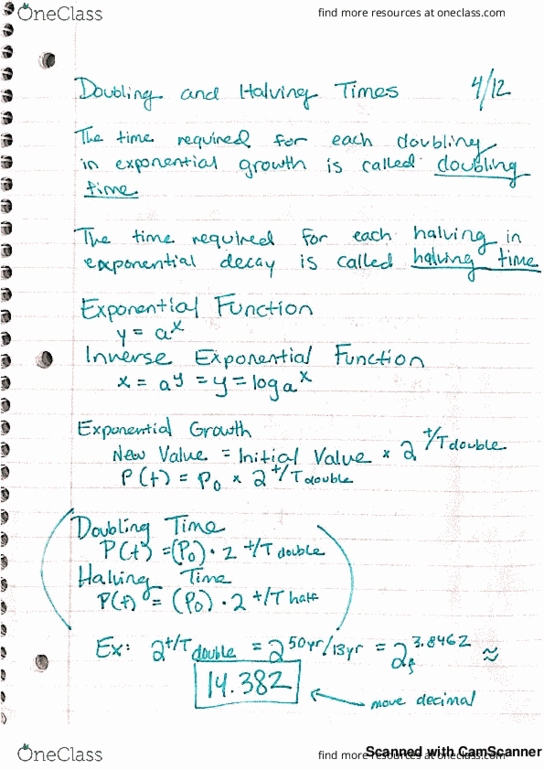 OneClass
find more resources at oneclass.com
Doubling and Halving Times 4/12
The time required for each doubling
in exponential growth is called doubling
time
The time required for each halving in
exponential decay is called halving time
Exponential Function
y = a^x
Inverse Exponential Function
x = a^y = y = log a^x
Exponential Growth
New Value = Initial Value × 2^t/T double
P(t) = P₀ × 2^t/T double
Doubling Time
P(t) = (P₀) · 2^t/T double
Halving Time
P(t) = (P₀) · 2^t/T half
Ex: 2^t/T double = 2^50yr/13yr = 2^3.8462 ≈
14.382 ← move decimal
OneClass
find more resources at oneclass.com
Scanned with CamScanner